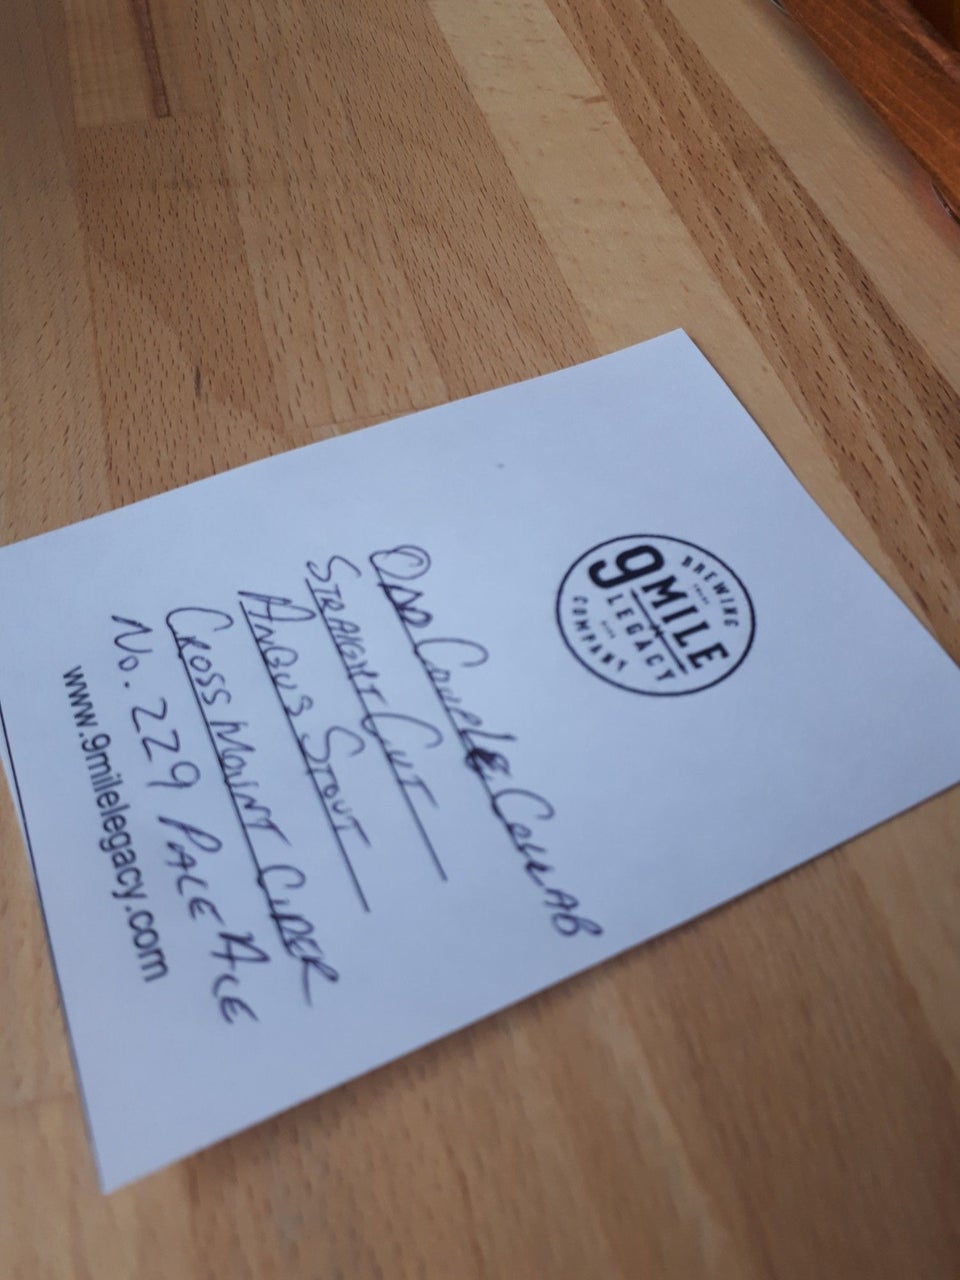 BREWING
9 MILE
LEGACY
COMPANY
ODD COUPLE COLLAB
STRAIGHT CUT
ANGUS STOUT
CROSSMOUNT CIDER
No. 229 PALE ALE
www.9milelegacy.com